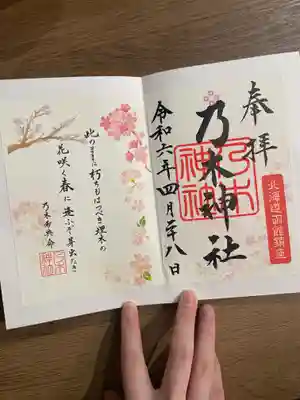 奉拝
北海道函館鎮座
乃木神社
乃木神社
令和六年四月廿八日
此のままに朽ちもはつべき埋木の
花咲く春に逢ふぞ芽出たき
乃木希典命
乃木神社